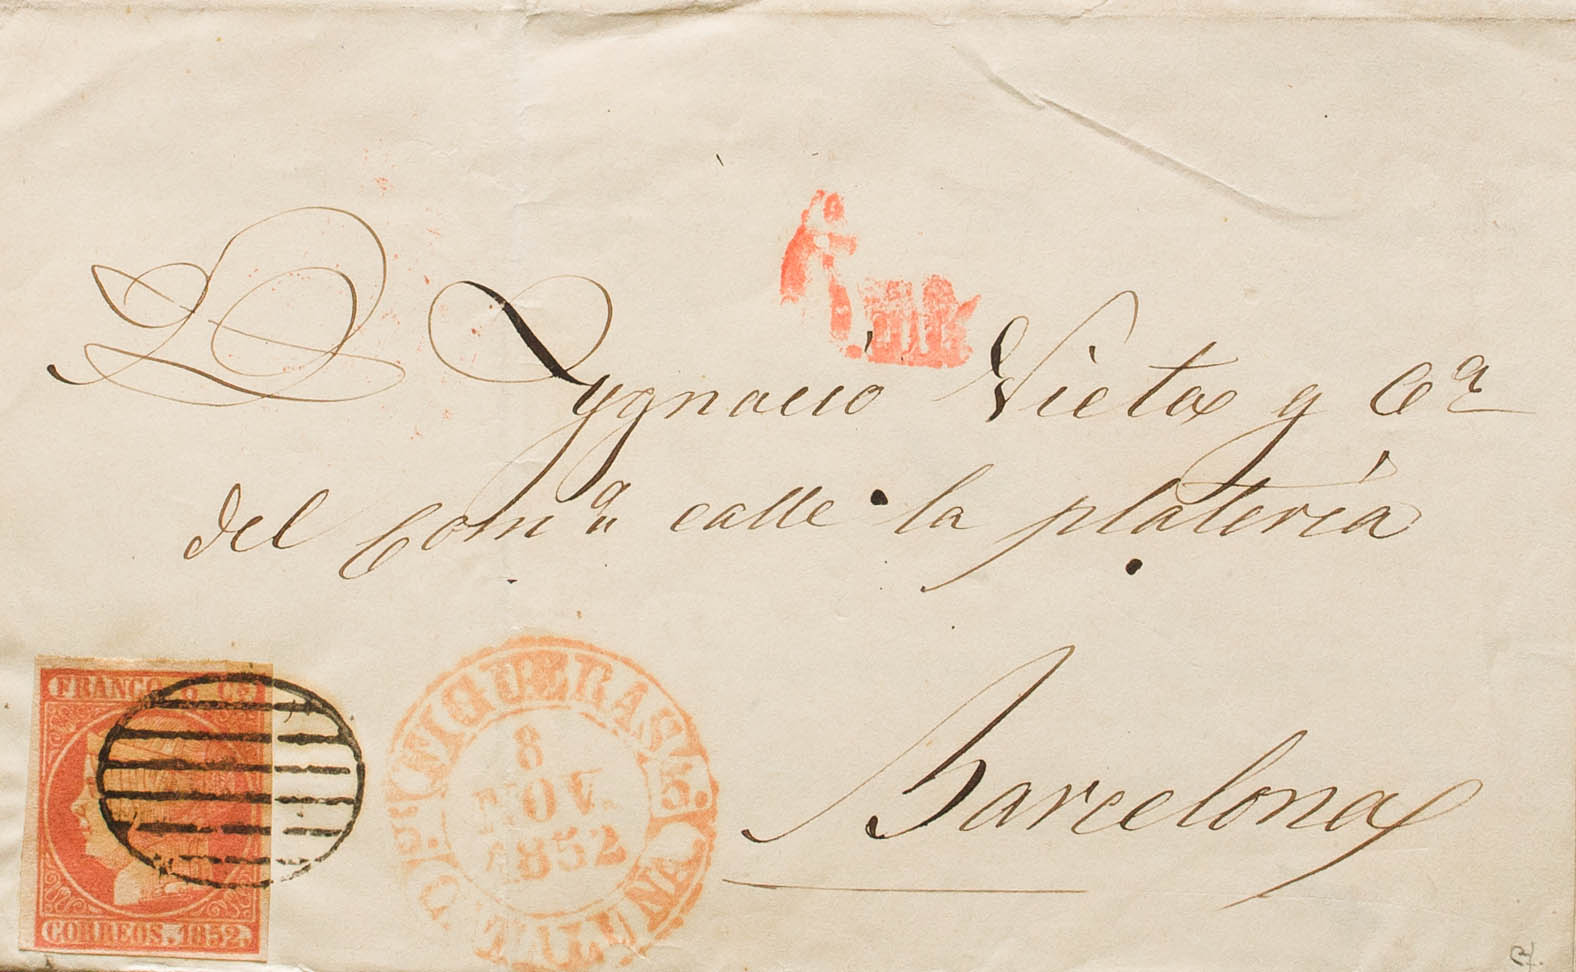 D. Ygnacio Vieta y Cª
del Comº calle la platería
Barcelona
FRANCO 6 CS
CORREOS. 1852.
FIGUERAS
8
NOV.
1852
CATALUÑA